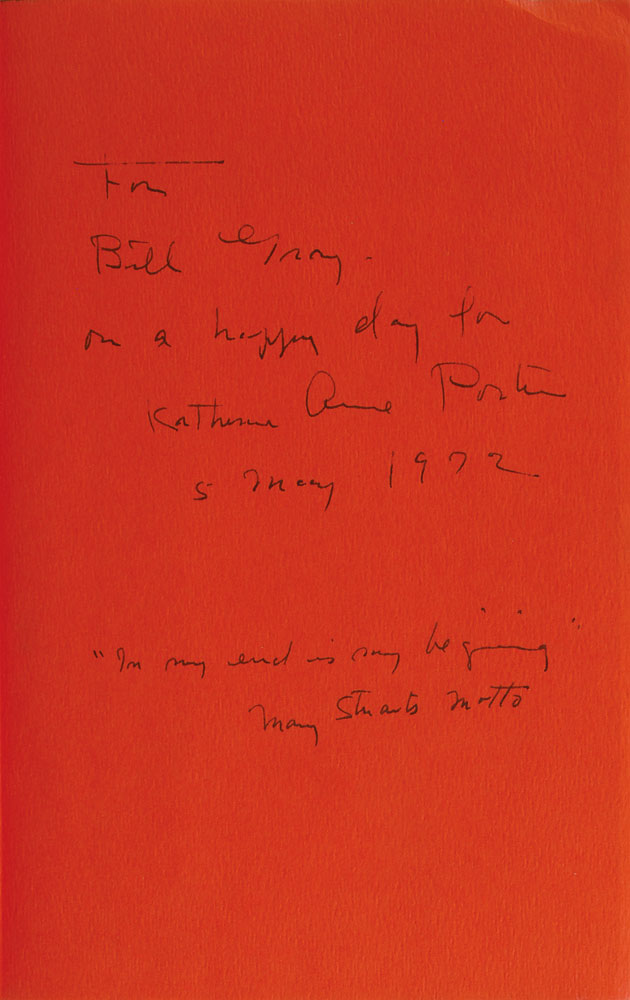 For
Bill Gray.
on a happy day for
Katherine Anne Porter
5 May 1972
"In my end is my beginning"
Mary Stuarts Motto